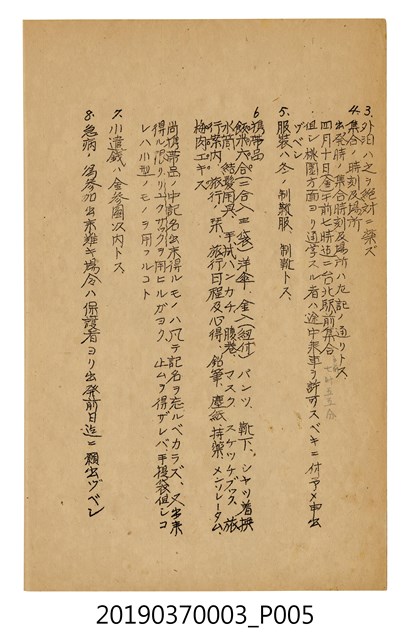 3. 外泊ハ之ヲ絶対ニ禁ズ
4. 集合ノ時刻及場所
出発時ノ集合時刻及場所ハ左記ノ通リトス、
四月十日(金)午前七時迄ニ台北駅前集合
但シ桃園方面ヨリ通学スル者ハ途中乗車ヲ許可スベキニ付予メ申出
ヅベシ
5. 服装ハ冬制靴服、制靴トス、
6. 携帯品
飯米六合(二合入三袋)洋傘、金入(紐付)パンツ、靴下、シャツ着換
水筒、結髪用具、手拭ハンカチ、腹巻、マスク、スケッチブック、旅
行案内、旅行ノ栞、旅行日程及心得、鉛筆、塵紙、持薬、メンソレータム、
梅肉エキス
尚携帯品ノ中記名出来得ルモノハ凡テ記名ヲ忘ルベカラズ、又出来
得ル限リリュクサックヲ用ヒルガヨク、止ムヲ得ザレバ手提袋但シコ
レハ小型ノモノヲ用フルコト
7. 小遣銭ハ金参圓以内トス、
8. 急病ノ為参加出来難キ場合ハ保護者ヨリ出発前日迄ニ願出ヅベシ
20190370003_P005